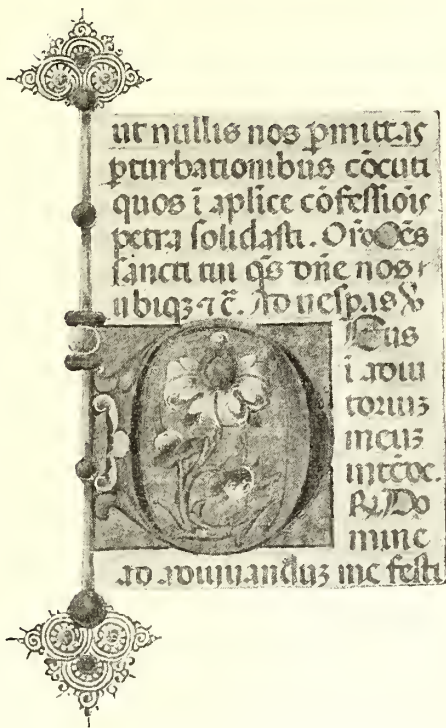 ut nullis nos ꝑmittas
ꝑturbationibus cōcuti
quos ī aplice cōfessiois
petra solidasti. Orō Oēs
sancti tui qs dñe nos
ubiqꝫ ⁊c̄. Ad uespas ℣
Deus
ī adiu
toriuꝫ
meuꝫ
intēde.
℟. Do
mine
ad adiuuanduꝫ me festi